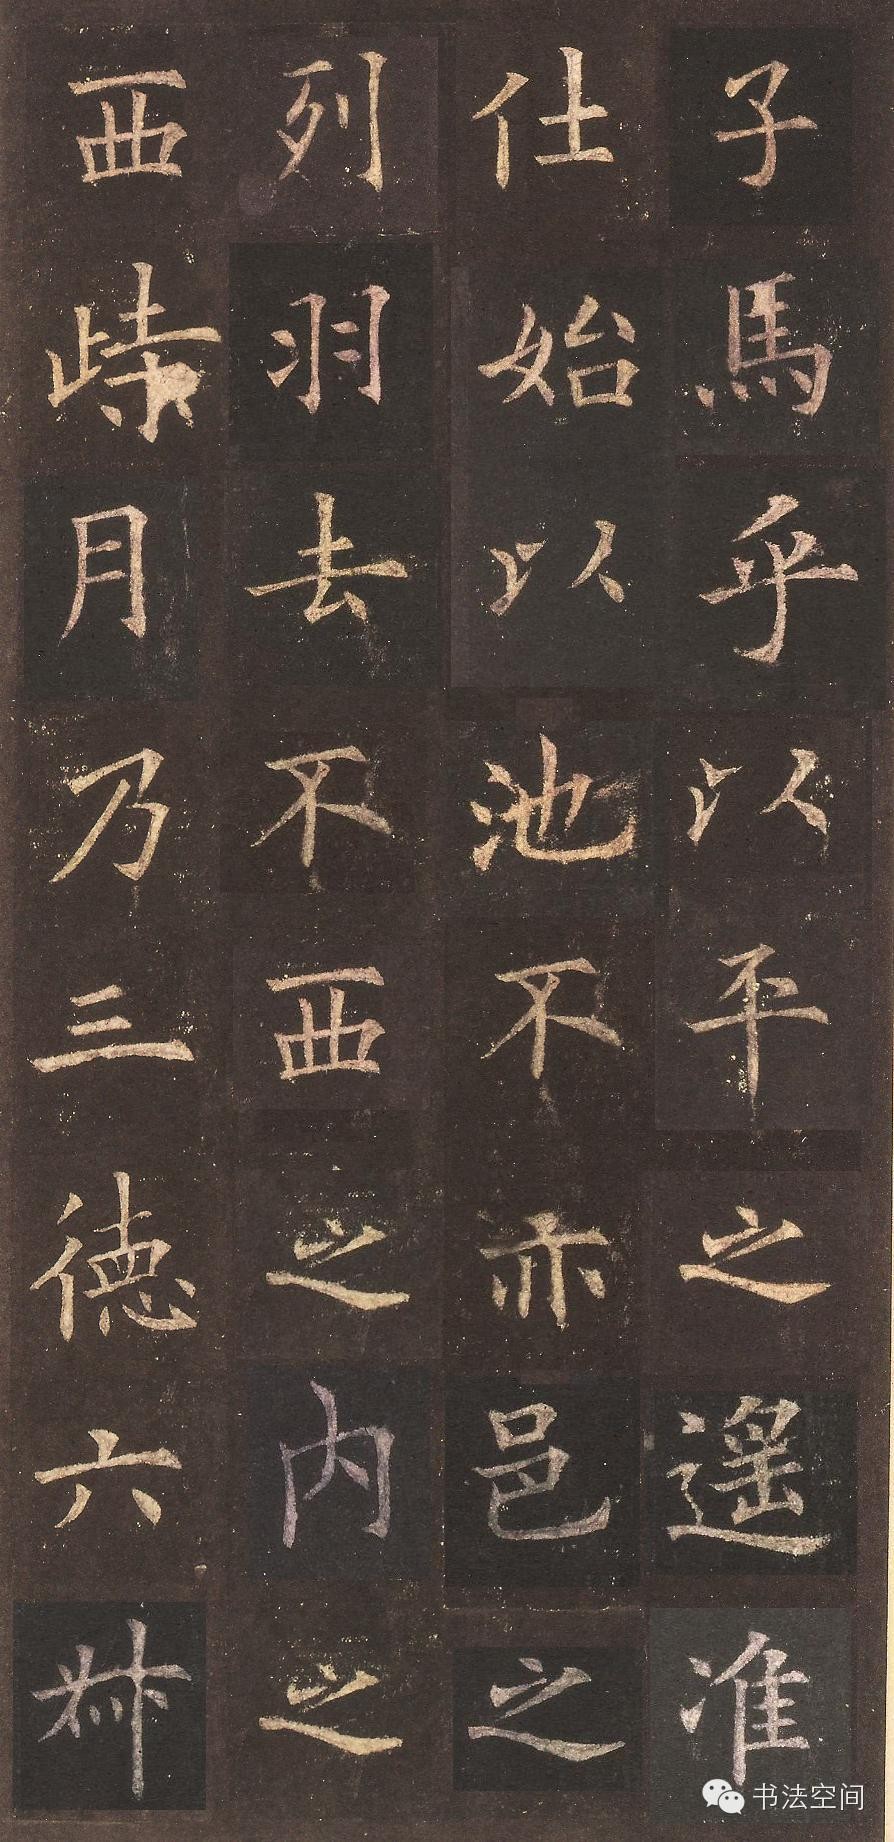 子馬乎以平之遙准
仕始以池不亦邑之
列羽去不西之内之
西月乃三德六
书法空间